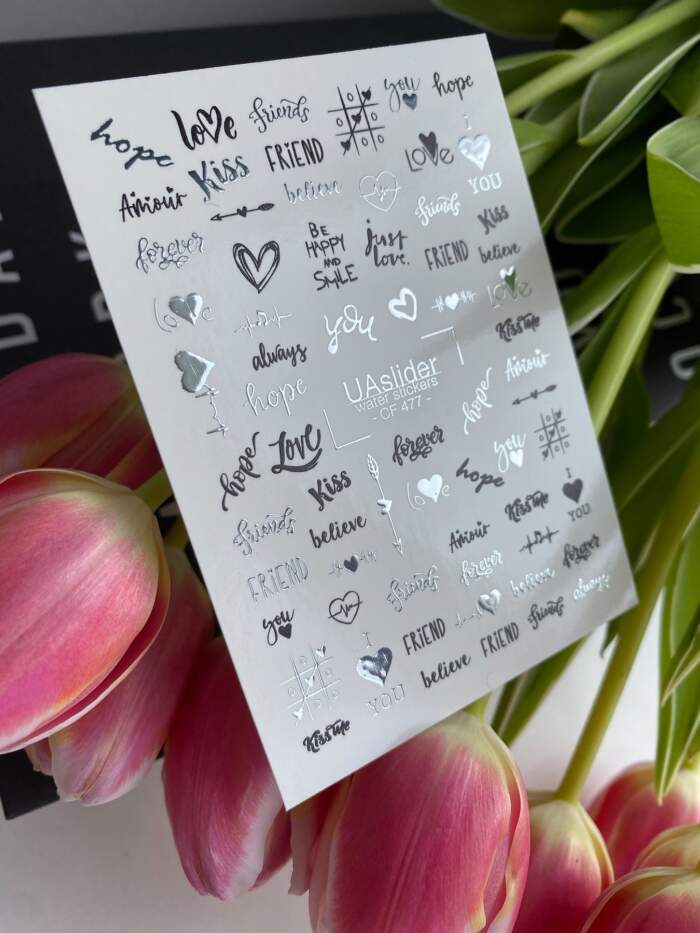 hope
love
friends
you
hope
Amour
Kiss
FRIEND
believe
LOVE
I
YOU
forever
BE
HAPPY
AND
SMILE
just
love.
friends
FRIEND
Kiss
believe
love
always
you
love
Kiss me
hope
UAslider
water stickers
- CF 477 -
hope
Amour
hope
Love
Kiss
forever
love
hope
you
friends
believe
Amour
Kiss me
I
YOU
FRIEND
friends
forever
believe
forever
always
you
I
YOU
FRIEND
believe
FRIEND
friends
Kiss me